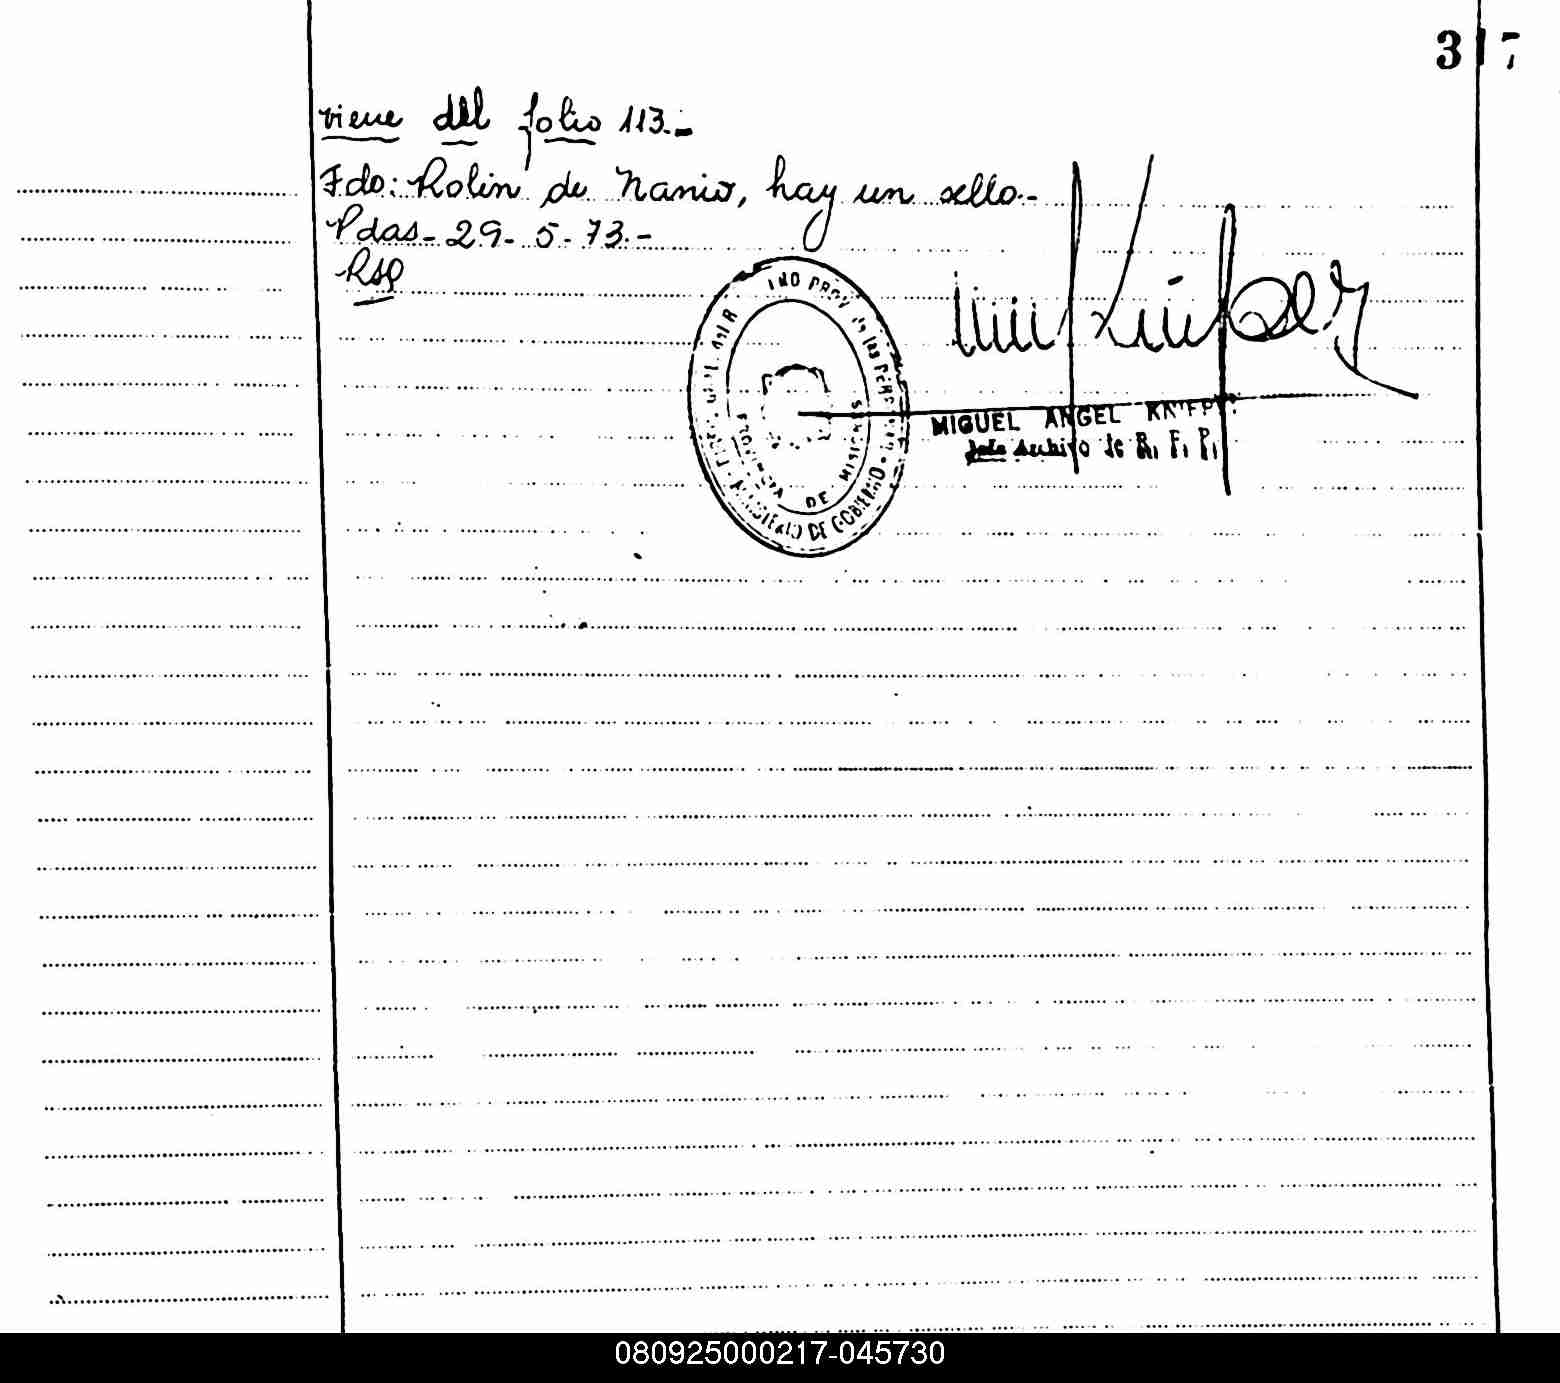 317
viene del folio 113.-
Fdo: Rolin de Nanio, hay un sello.-
Pdas- 29- 5- 73.-
RSP
PROVINCIA DE MISIONES
MINISTERIO DE GOBIERNO
MIGUEL ANGEL
Jefe Archivo de R. F. P.
080925000217-045730